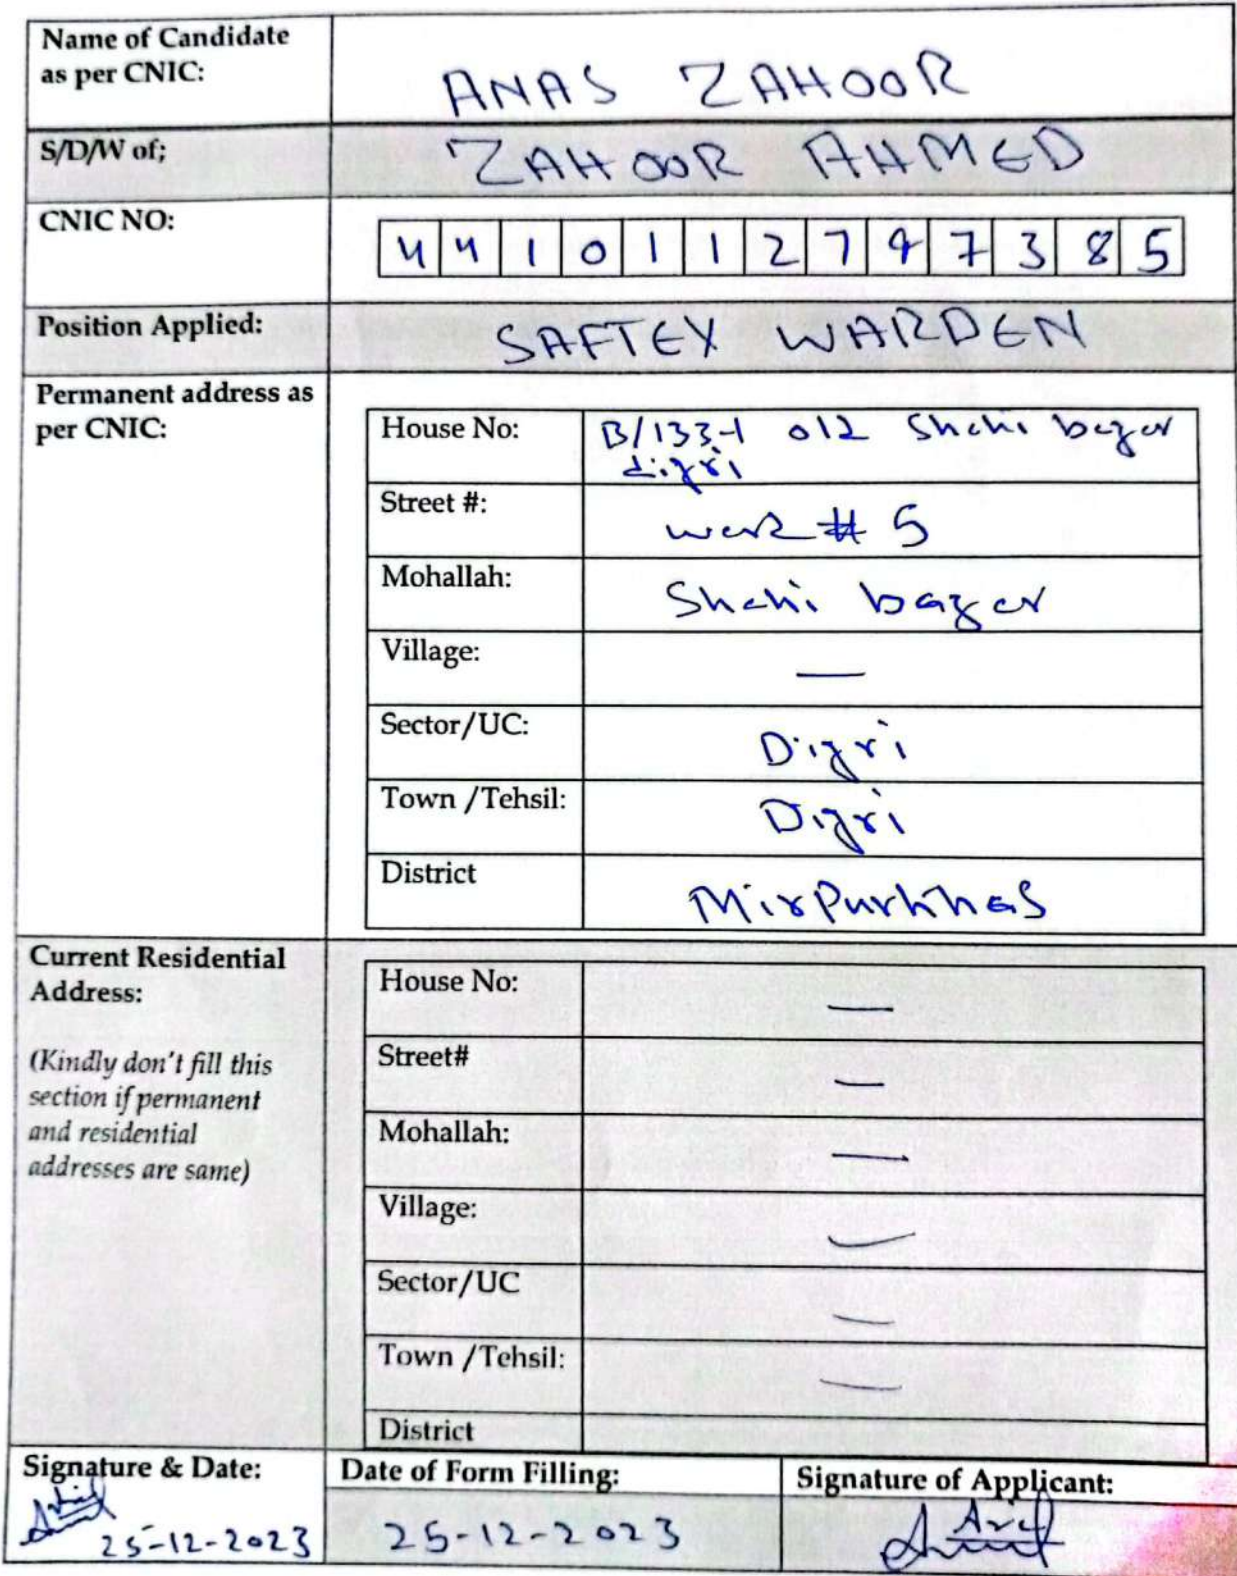 Name of Candidate
as per CNIC:
ANAS ZAHOOR
S/D/W of;
ZAHOOR AHMED
CNIC NO:
4 4 1 0 1 1 2 7 9 7 3 8 5
Position Applied:
SAFTEX WARDEN
Permanent address as
per CNIC:
House No:
B/133-1 012 Shahi bazar
digri
Street #:
# 5
Mohallah:
Shahi bazar
Village:
—
Sector/UC:
Digri
Town /Tehsil:
Digri
District
MirPurkhas
Current Residential
Address:
(Kindly don't fill this
section if permanent
and residential
addresses are same)
House No:
—
Street#
—
Mohallah:
—
Village:
—
Sector/UC
—
Town /Tehsil:
—
District
Signature & Date:
25-12-2023
Date of Form Filling:
25-12-2023
Signature of Applicant: